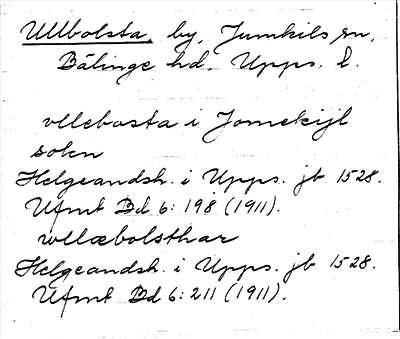 Ullbolsta, by, Jumkils sn,
Bälinge hd, Upps. l.
vllebasta i Jomekijl
sokn
Helgeandsh. i Upps. jb 1528.
Ufmt Bd 6: 198 (1911).
wllæbolsthar
Helgeandsh. i Upps. jb 1528.
Ufmt Bd 6: 211 (1911).